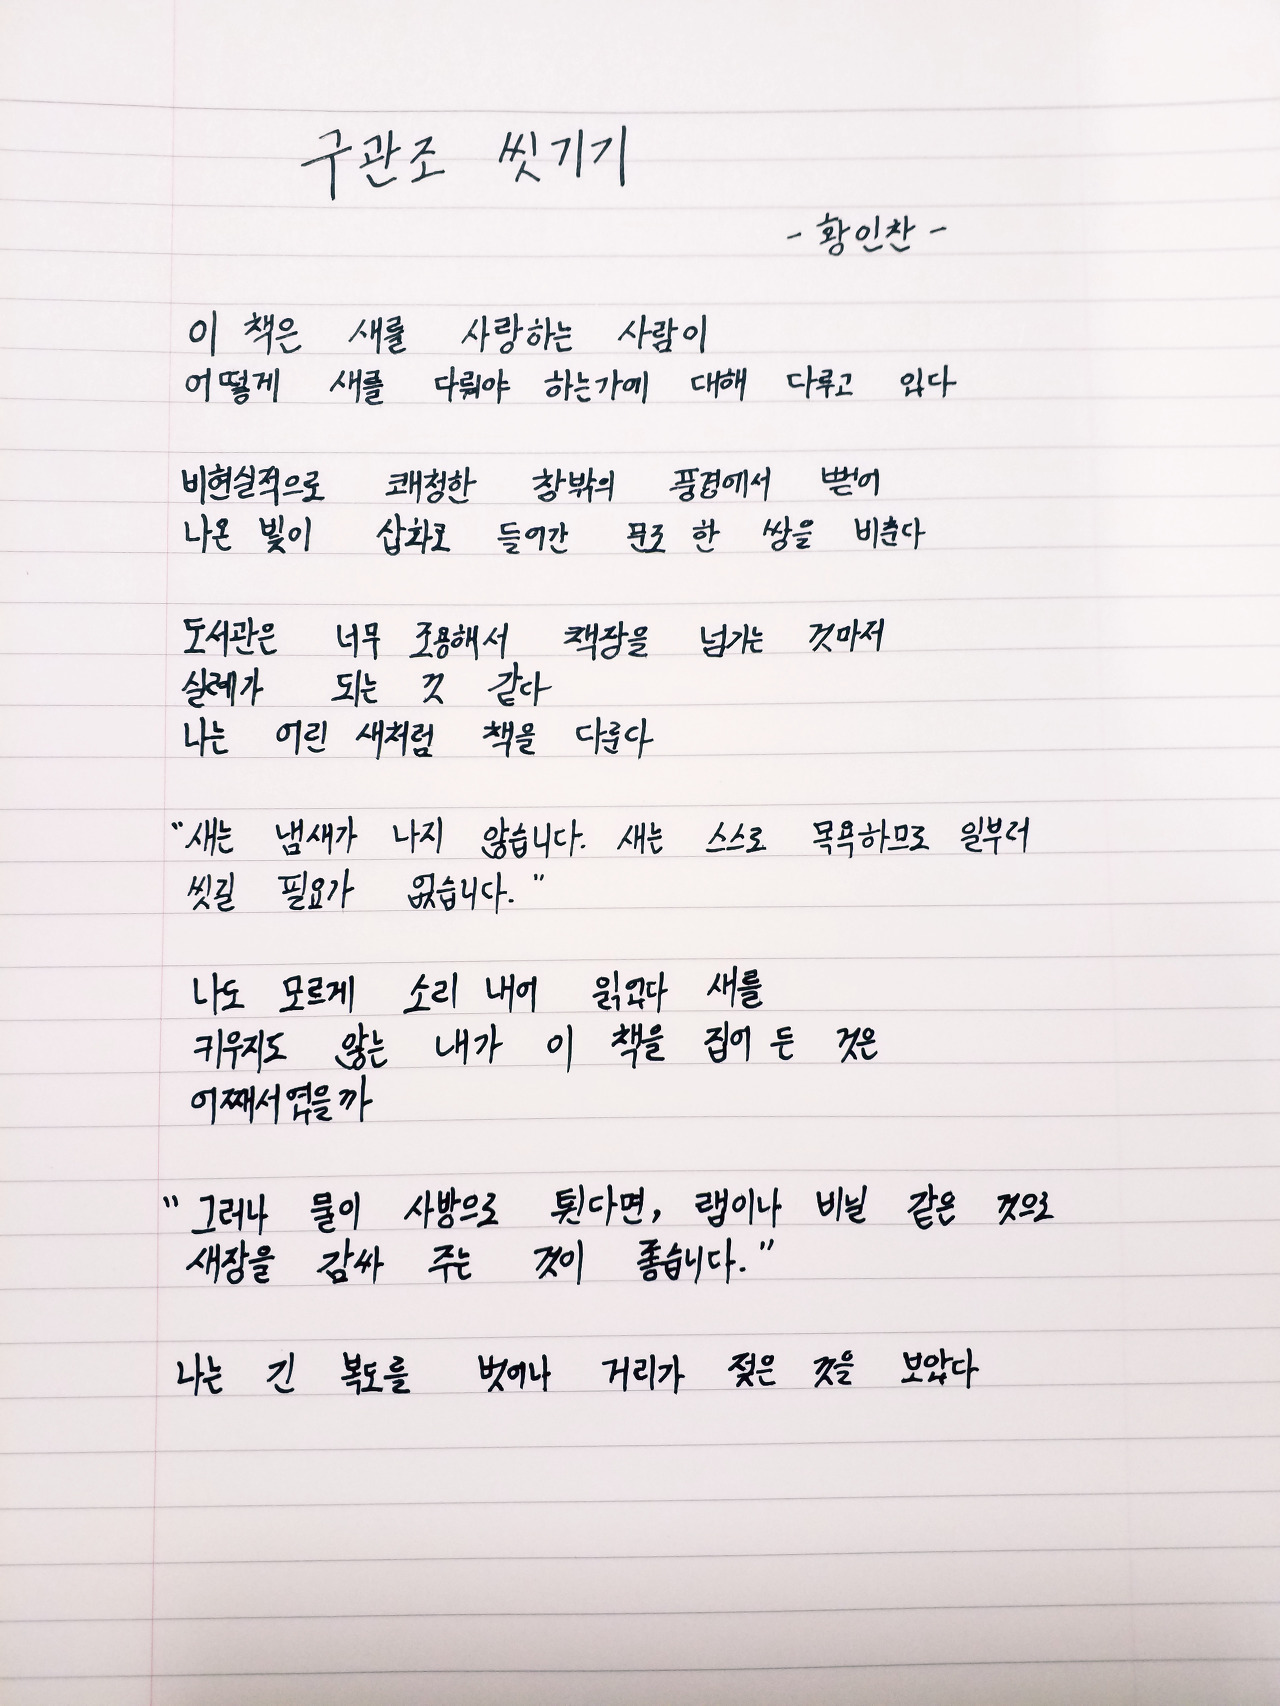 구관조 씻기기
- 황인찬 -
이 책은 새를 사랑하는 사람이
어떻게 새를 다뤄야 하는가에 대해 다루고 있다
비현실적으로 쾌청한 창밖의 풍경에서 뻗어
나온 빛이 삽화로 들어간 문조 한 쌍을 비춘다
도서관은 너무 조용해서 책장을 넘기는 것마저
실례가 되는 것 같다
나는 어린 새처럼 책을 다룬다
"새는 냄새가 나지 않습니다. 새는 스스로 목욕하므로 일부러
씻길 필요가 없습니다."
나도 모르게 소리 내어 읽었다 새를
키우지도 않는 내가 이 책을 집어 든 것은
어째서였을까
"그러나 물이 사방으로 튄다면, 랩이나 비닐 같은 것으로
새장을 감싸 주는 것이 좋습니다."
나는 긴 복도를 벗어나 거리가 젖은 것을 보았다